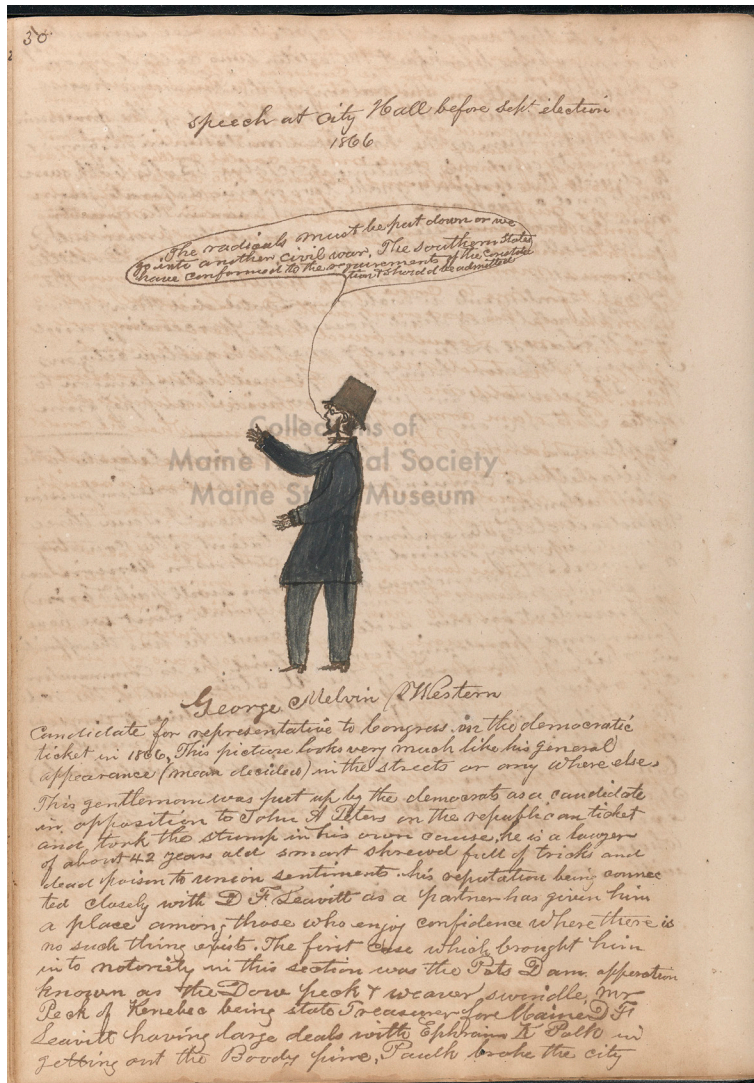 30
speech at City Hall before Sept. election
1866
The radicals must be put down or we
go into another civil war. The southern States
have conformed to the requirements of the constitu
tion & should be admitted
Collections of
Maine Historical Society
Maine State Museum
George Melvin Western
candidate for representative to Congress in the democratic
ticket in 1866, This picture looks very much like his general
appearance (mean decided) in the streets or any where else.
This gentleman was put up by the democrats as a candidate
in opposition to John A Peters on the republican ticket
and took the stump in his own cause, he is a lawyer
of about 42 years old smart shrewd full of tricks and
dead poison to union sentiments. his reputation being connec
ted closely with D F Leavitt as a partner has given him
a place among those who enjoy confidence where there is
no such thing exists. The first case which brought him
in to notoriety in this section was the Dam opperation
known as the Dow peck & weaver swindle, Mr
Peck of Kenebec being state Treasurer for Maine D F
Leavitt having large deals with Ephraim K Polk in
getting out the Boody pine, Paulk broke the city